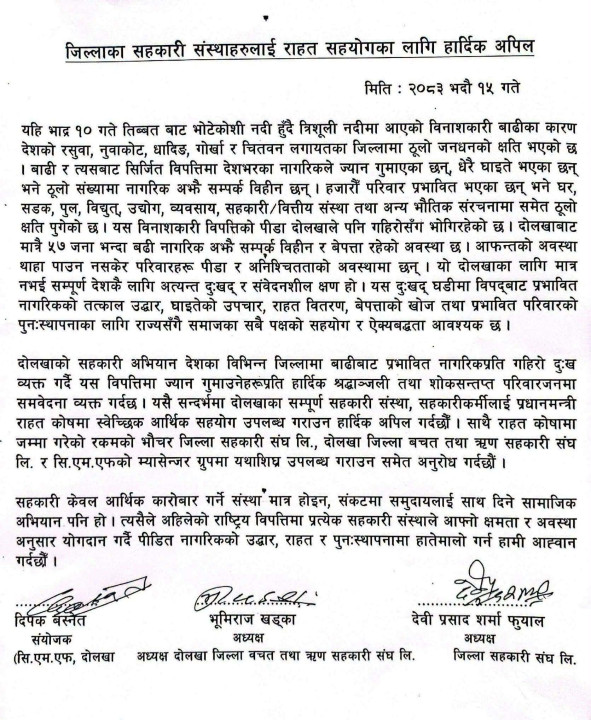 जिल्लाका सहकारी संस्थाहरुलाई राहत सहयोगका लागि हार्दिक अपिल
मिति : २०८३ भदौ १५ गते
यहि भाद्र १० गते तिब्बत बाट भोटेकोशी नदी हुँदै त्रिशूली नदीमा आएको विनाशकारी बाढीका कारण
देशको रसुवा, नुवाकोट, धादिङ, गोर्खा र चितवन लगायतका जिल्लामा ठूलो जनधनको क्षति भएको छ
। बाढी र त्यसबाट सिर्जित विपत्तिमा देशभरका नागरिकले ज्यान गुमाएका छन्, धेरै घाइते भएका छन्
भने ठूलो संख्यामा नागरिक अझै सम्पर्क विहीन छन् । हजारौँ परिवार प्रभावित भएका छन् भने घर,
सडक, पुल, विद्युत्, उद्योग, व्यवसाय, सहकारी/वित्तीय संस्था तथा अन्य भौतिक संरचनामा समेत ठूलो
क्षति पुगेको छ । यस विनाशकारी विपत्तिको पीडा दोलखाले पनि गहिरोसँग भोगिरहेको छ । दोलखाबाट
मात्रै ५७ जना भन्दा बढी नागरिक अझै सम्पर्क विहीन र बेपत्ता रहेको अवस्था छ । आफन्तको अवस्था
थाहा पाउन नसकेर परिवारहरू पीडा र अनिश्चितताको अवस्थामा छन् । यो दोलखाका लागि मात्र
नभई सम्पूर्ण देशकै लागि अत्यन्त दुःखद् र संवेदनशील क्षण हो । यस दुःखद् घडीमा विपद्बाट प्रभावित
नागरिकको तत्काल उद्धार, घाइतेको उपचार, राहत वितरण, बेपत्ताको खोज तथा प्रभावित परिवारको
पुनःस्थापनाका लागि राज्यसँगै समाजका सबै पक्षको सहयोग र ऐक्यबद्धता आवश्यक छ ।
दोलखाको सहकारी अभियान देशका विभिन्न जिल्लामा बाढीबाट प्रभावित नागरिकप्रति गहिरो दुःख
व्यक्त गर्दै यस विपत्तिमा ज्यान गुमाउनेहरूप्रति हार्दिक श्रद्धाञ्जली तथा शोकसन्तप्त परिवारजनमा
समवेदना व्यक्त गर्दछ । यसै सन्दर्भमा दोलखाका सम्पूर्ण सहकारी संस्था, सहकारीकर्मीलाई प्रधानमन्त्री
राहत कोषमा स्वेच्छिक आर्थिक सहयोग उपलब्ध गराउन हार्दिक अपिल गर्दछौँ । साथै राहत कोषामा
जम्मा गरेको रकमको भौचर जिल्ला सहकारी संघ लि., दोलखा जिल्ला बचत तथा ऋण सहकारी संघ
लि. र सि.एम.एफको म्यासेन्जर ग्रुपमा यथाशिघ्र उपलब्ध गराउन समेत अनुरोध गर्दछौं ।
सहकारी केवल आर्थिक कारोबार गर्ने संस्था मात्र होइन, संकटमा समुदायलाई साथ दिने सामाजिक
अभियान पनि हो । त्यसैले अहिलेको राष्ट्रिय विपत्तिमा प्रत्येक सहकारी संस्थाले आफ्नो क्षमता र अवस्था
अनुसार योगदान गर्दै पीडित नागरिकको उद्धार, राहत र पुनःस्थापनामा हातेमालो गर्न हामी आह्वान
गर्दछौँ ।
दिपक बस्नेत भूमिराज खड्का देवी प्रसाद शर्मा फुयाल
संयोजक अध्यक्ष अध्यक्ष
(सि.एम.एफ, दोलखा अध्यक्ष दोलखा जिल्ला बचत तथा ऋण सहकारी संघ लि. जिल्ला सहकारी संघ लि.